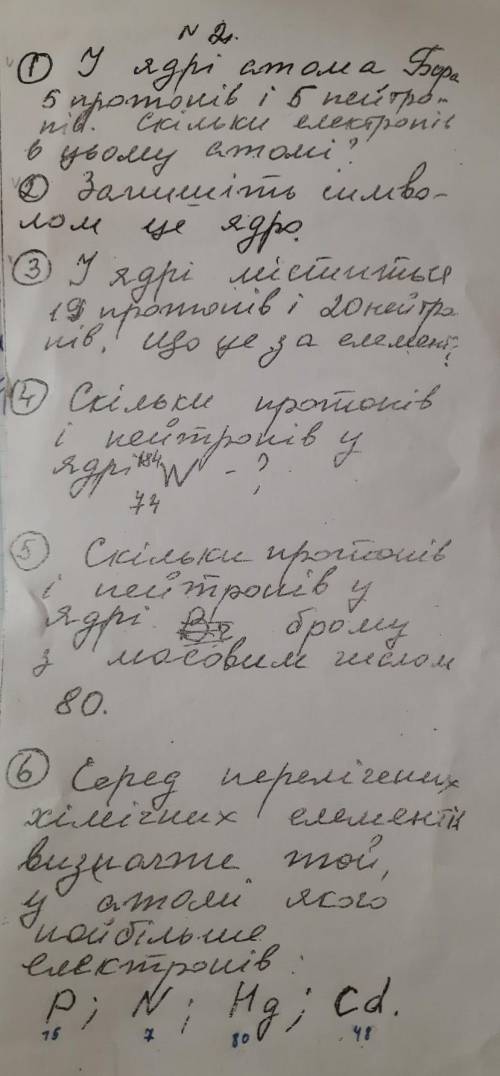 N 2.
① У ядрі атома Бора
5 протонів і 5 нейтро-
нів. Скільки електронів
в цьому атомі?
② Запишіть симво-
лом це ядро.
③ У ядрі міститься
19 протонів і 20 нейтро
нів. Що це за елемент?
④ Скільки протонів
і нейтронів у
ядрі ¹⁸⁴W - ?
74
⑤ Скільки протонів
і нейтронів у
ядрі брому
з масовим числом
80.
⑥ Серед перелічених
хімічних елементів
визначте той,
у атомі якого
найбільше
електронів:
P; N; Hg; Cd.
15 7 80 48